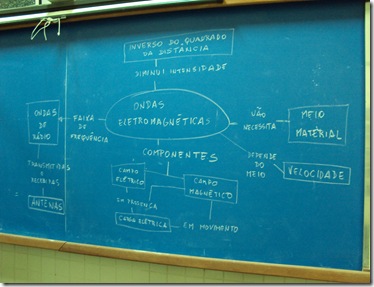 INVERSO DO QUADRADO
DA DISTÂNCIA
DIMINUI INTENSIDADE
ONDAS
ELETROMAGNÉTICAS
FAIXA
DE
FREQUÊNCIA
ONDAS
DE
RÁDIO
TRANSMITIDAS
E
RECEBIDAS
ANTENAS
NÃO
NECESSITA
MEIO
MATERIAL
DEPENDE
DO
MEIO
VELOCIDADE
COMPONENTES
CAMPO
ELÉTRICO
CAMPO
MAGNÉTICO
EM PRESENÇA
CARGA ELÉTRICA
EM MOVIMENTO